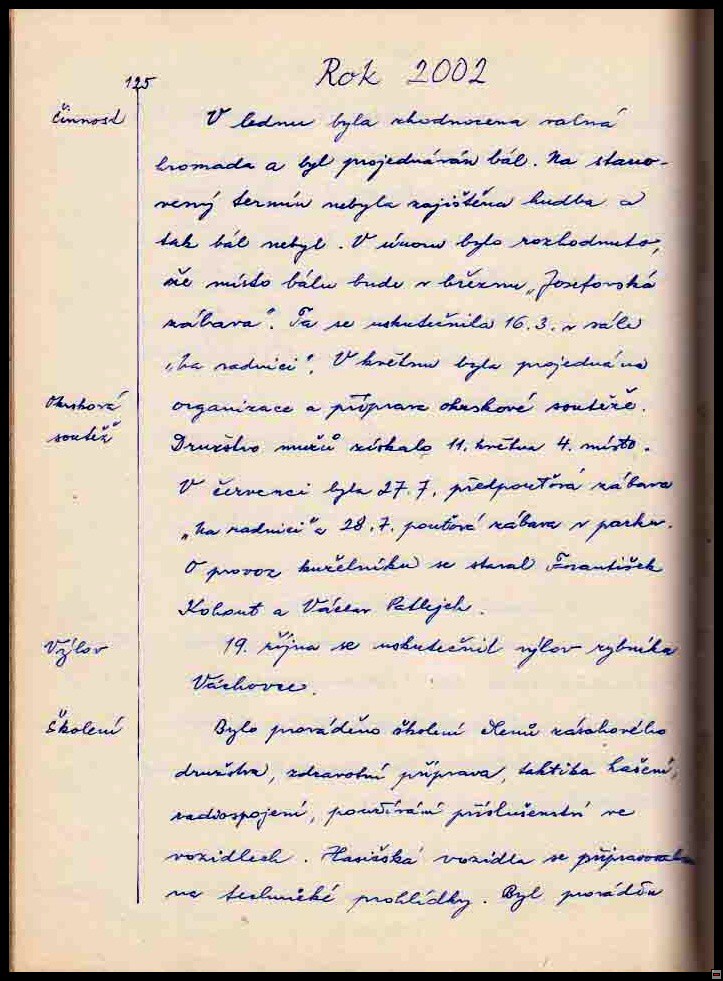 125
Rok 2002
Činnost
V lednu byla zhodnocena valná
hromada a byl projednáván bál. Na stano-
vený termín nebyla zajištěna hudba a
tak bál nebyl. V únoru bylo rozhodnuto,
že místo bálu bude v březnu „Josefovská
zábava". Ta se uskutečnila 16.3. v sále
„Na radnici". V květnu byla projednána
Okrsková
soutěž
organizace a příprava okrskové soutěže.
Družstvo mužů získalo 11. května 4. místo.
V červenci byla 27.7. předpouťová zábava
„Na radnici" a 28.7. pouťová zábava v parku.
O provoz kuželníku se staral František
Kohout a Václav Patlejch.
Výlov
19. října se uskutečnil výlov rybníka
Váchovce.
Školení
Bylo prováděno školení členů zásahového
družstva, zdravotní příprava, taktika hašení,
radiospojení, používání příslušenství ve
vozidlech. Hasičská vozidla se připravovala
na technické prohlídky. Byl prováděn